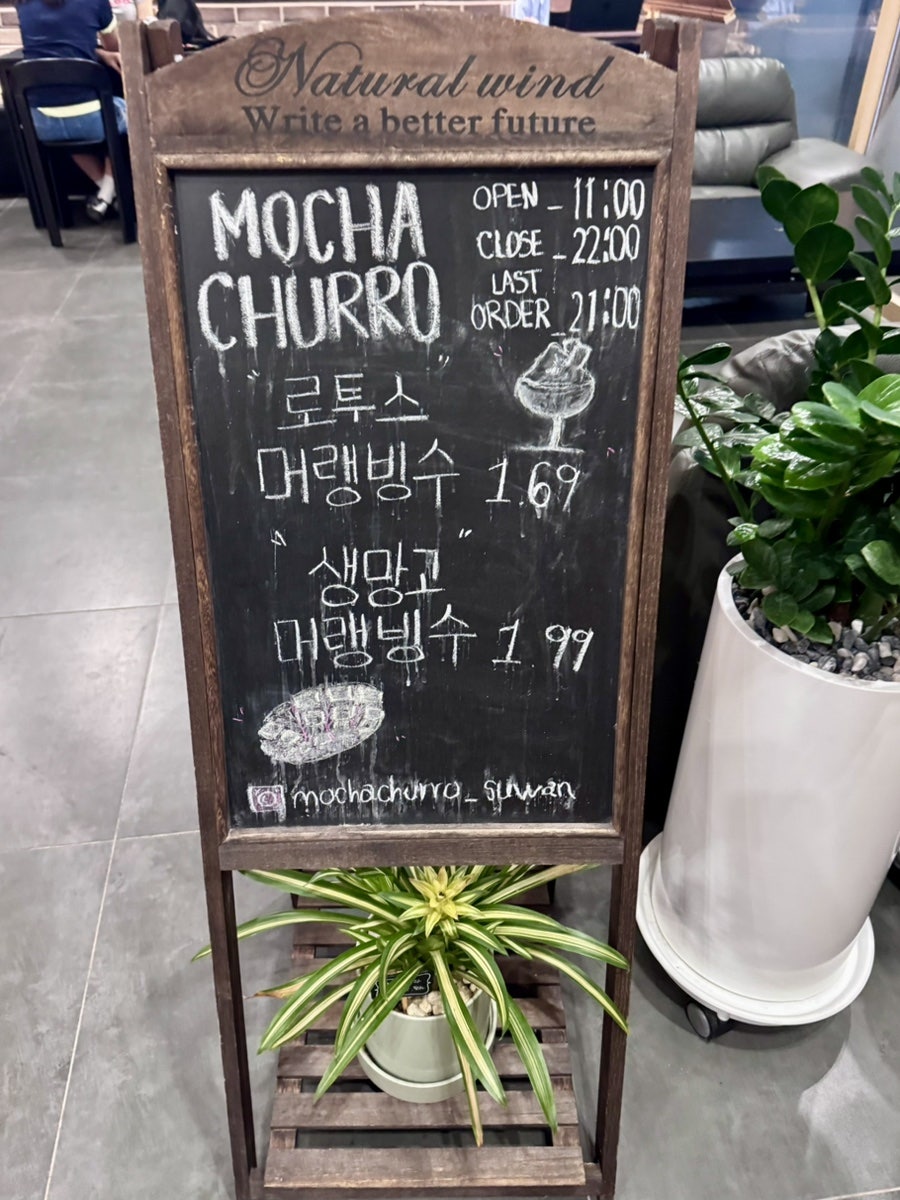 Natural wind
Write a better future
MOCHA
CHURRO
OPEN _ 11:00
CLOSE _ 22:00
LAST
ORDER _ 21:00
"로투스"
머랭빙수 1.69
"생망고"
머랭빙수 1.99
mochachurro_suwan